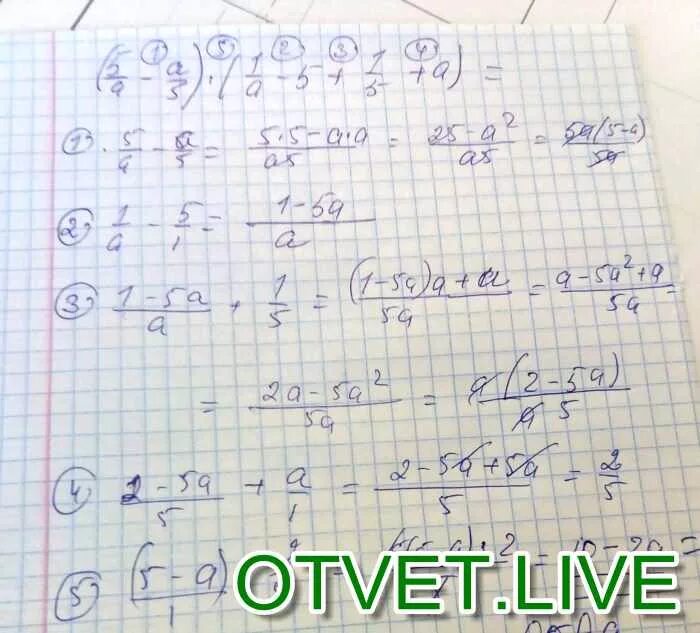 (5/a - a/5) · (1/a - 5 + 1/5 + a) =
① ⑤ ② ③ ④
1) 5/a - a/5 = (5·5-a·a)/a5 = (25-a²)/a5 = 5a(5-a)/5a
2) 1/a - 5/1 = (1-5a)/a
3) (1-5a)/a + 1/5 = ((1-5a)a+a)/5a = (a-5a²+a)/5a =
= (2a-5a²)/5a = a(2-5a)/a5
4) (2-5a)/5 + a/1 = (2-5a+5a)/5 = 2/5
5) (5-a)/1
OTVET.LIVE